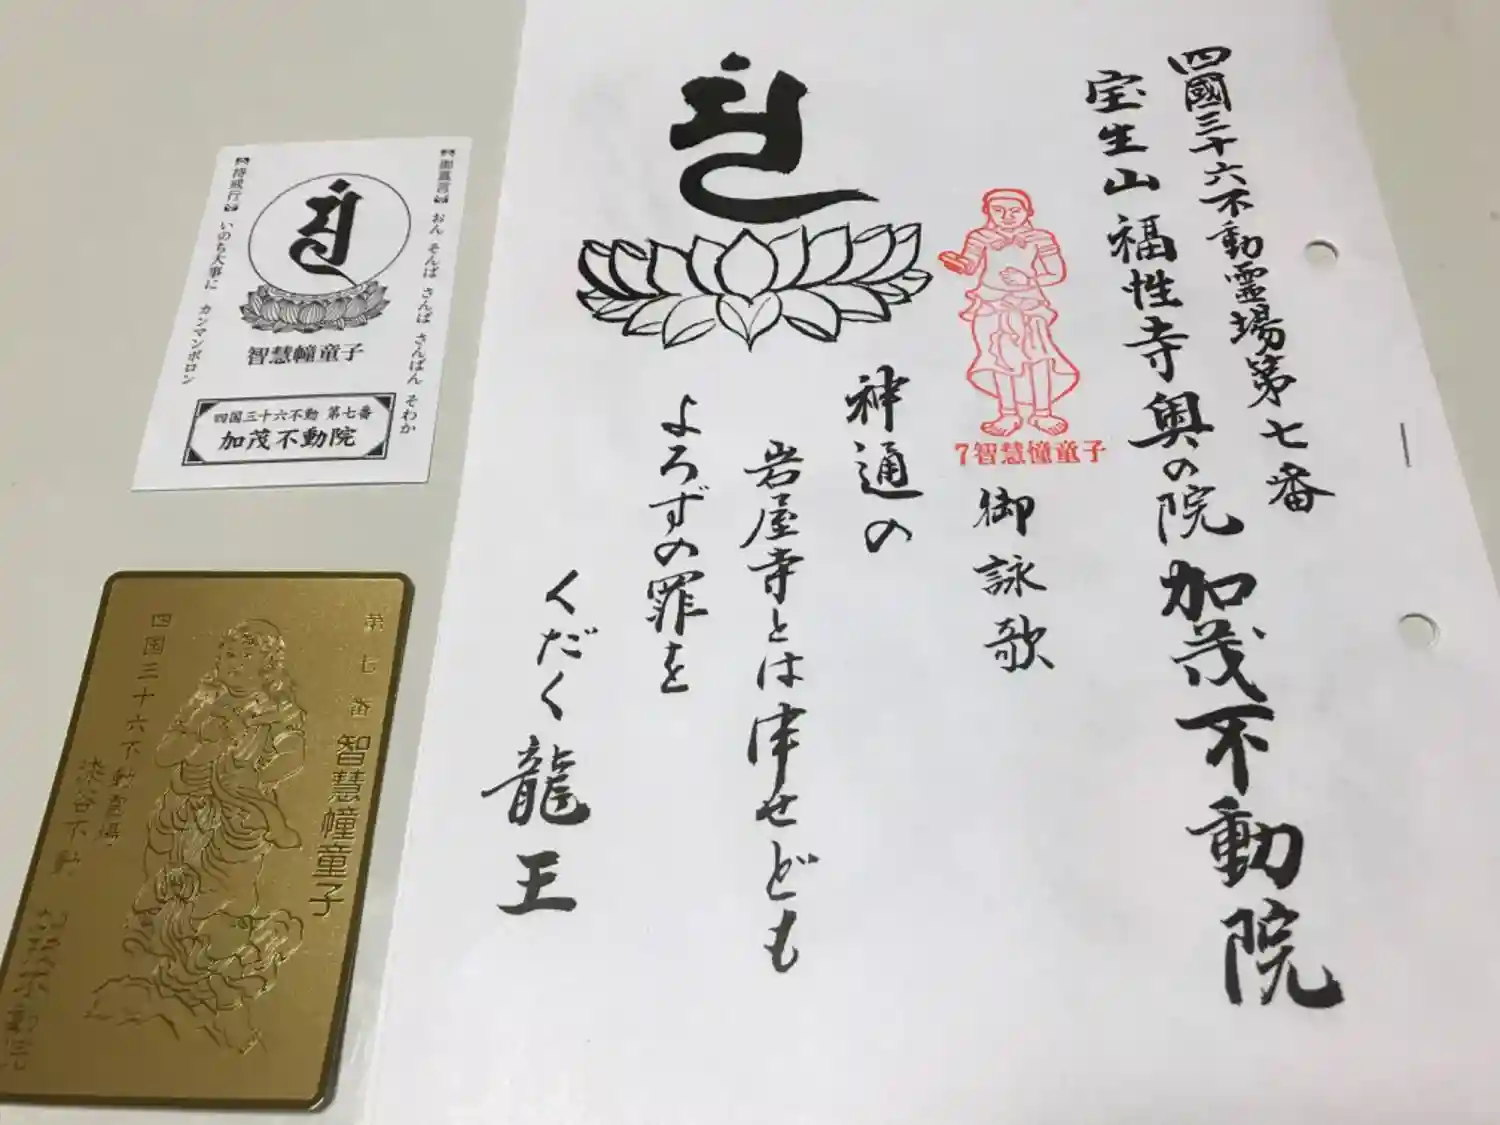 四國三十六不動霊場第七番
宝生山福性寺奥の院加茂不動院
7智慧幢童子
御詠歌
神通の
岩屋寺とは津せども
よろずの罪を
くだく龍王
御真言 おん そんば さんば さんばん そわか
持戒行 いのち大事に カンマンボロン
智慧幢童子
四国三十六不動 第七番
加茂不動院
第七番 智慧幢童子
四国三十六不動霊場